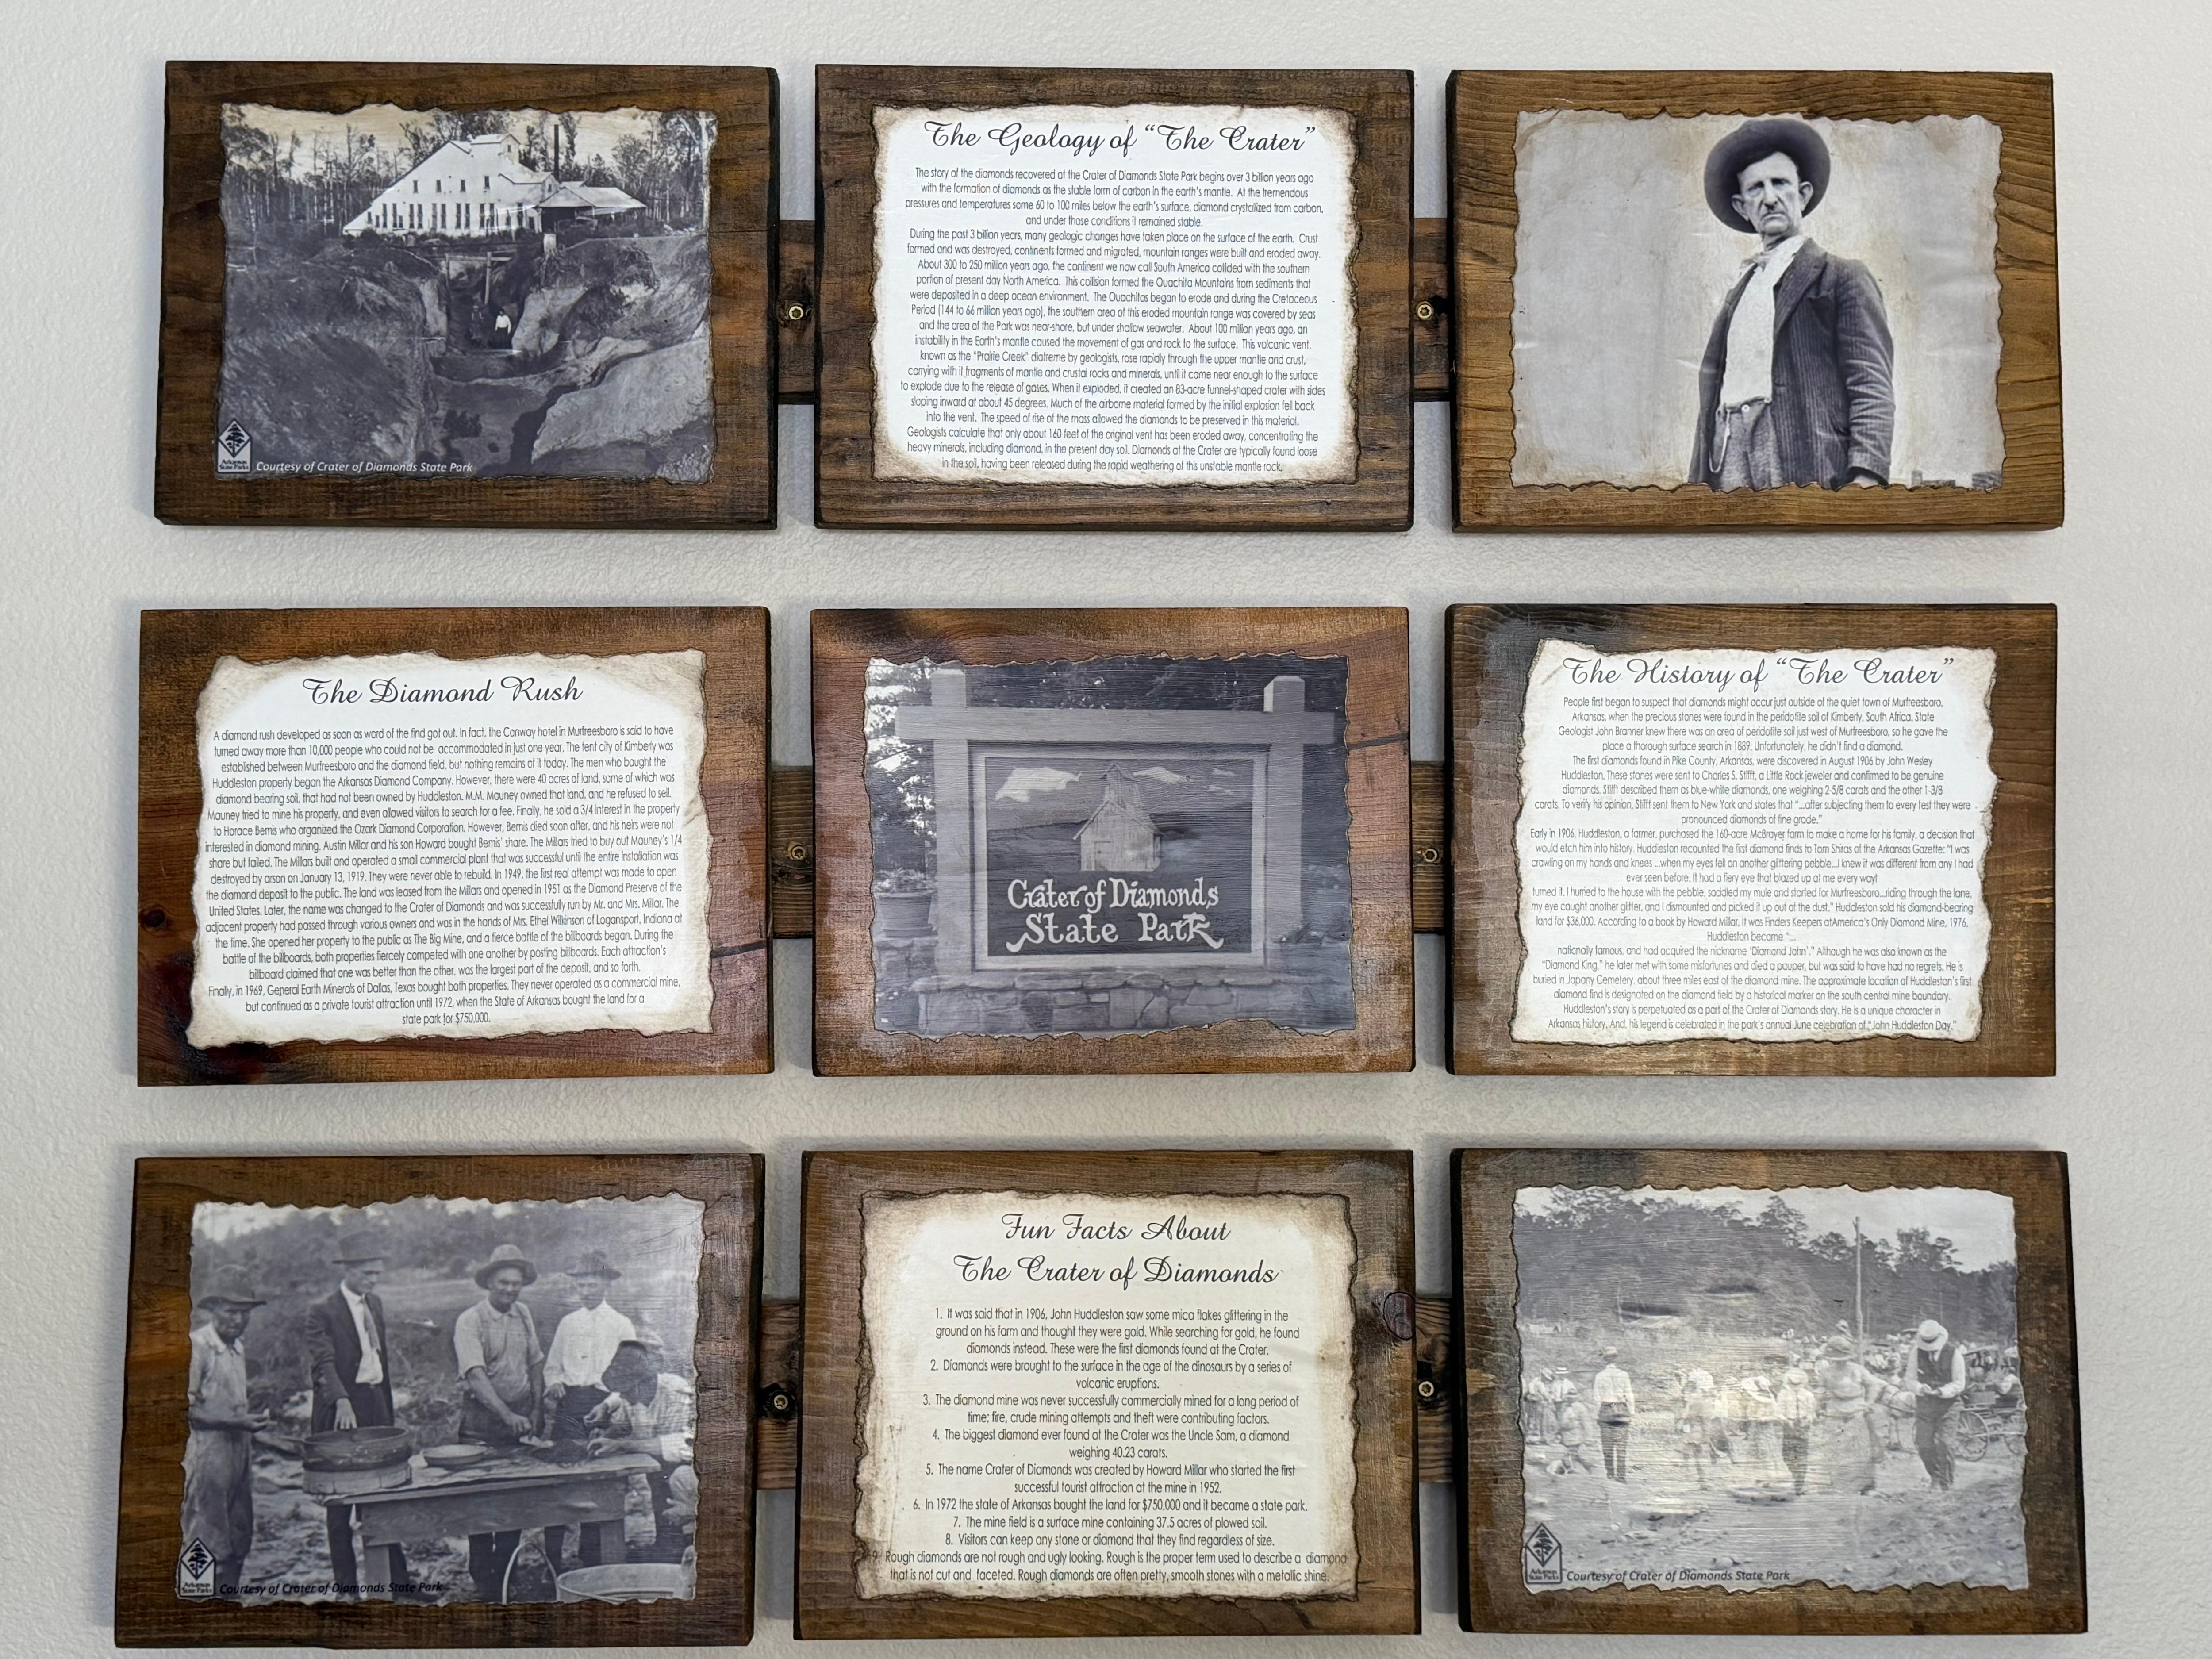 Arkansas
State Parks
Courtesy of Crater of Diamonds State Park
The Geology of "The Crater"
The story of the diamonds recovered at the Crater of Diamonds State Park begins over 3 billion years ago
with the formation of diamonds as the stable form of carbon in the earth's mantle. At the tremendous
pressures and temperatures some 60 to 100 miles below the earth's surface, diamond crystallized from carbon,
and under those conditions it remained stable.
During the past 3 billion years, many geologic changes have taken place on the surface of the earth. Crust
formed and was destroyed, continents formed and migrated, mountain ranges were built and eroded away.
About 300 to 250 million years ago, the continent we now call South America collided with the southern
portion of present day North America. This collision formed the Ouachita Mountains from sediments that
were deposited in a deep ocean environment. The Ouachitas began to erode and during the Cretaceous
Period (144 to 66 million years ago), the southern area of this eroded mountain range was covered by seas
and the area of the Park was near-shore, but under shallow seawater. About 100 million years ago, an
instability in the Earth's mantle caused the movement of gas and rock to the surface. This volcanic vent,
known as the "Prairie Creek" diatreme by geologists, rose rapidly through the upper mantle and crust,
carrying with it fragments of mantle and crustal rocks and minerals, until it came near enough to the surface
to explode due to the release of gases. When it exploded, it created an 83-acre funnel-shaped crater with sides
sloping inward at about 45 degrees. Much of the airborne material formed by the initial explosion fell back
into the vent. The speed of rise of the mass allowed the diamonds to be preserved in this material.
Geologists calculate that only about 160 feet of the original vent has been eroded away, concentrating the
heavy minerals, including diamond, in the present day soil. Diamonds at the Crater are typically found loose
in the soil, having been released during the rapid weathering of this unstable mantle rock.
The Diamond Rush
A diamond rush developed as soon as word of the find got out. In fact, the Conway hotel in Murfreesboro is said to have
turned away more than 10,000 people who could not be accommodated in just one year. The tent city of Kimberly was
established between Murfreesboro and the diamond field, but nothing remains of it today. The men who bought the
Huddleston property began the Arkansas Diamond Company. However, there were 40 acres of land, some of which was
diamond bearing soil, that had not been owned by Huddleston. M.M. Mauney owned that land, and he refused to sell.
Mauney tried to mine his property, and even allowed visitors to search for a fee. Finally, he sold a 3/4 interest in the property
to Horace Bemis who organized the Ozark Diamond Corporation. However, Bemis died soon after, and his heirs were not
interested in diamond mining. Austin Millar and his son Howard bought Bemis' share. The Millars tried to buy out Mauney's 1/4
share but failed. The Millars built and operated a small commercial plant that was successful until the entire installation was
destroyed by arson on January 13, 1919. They were never able to rebuild. In 1949, the first real attempt was made to open
the diamond deposit to the public. The land was leased from the Millars and opened in 1951 as the Diamond Preserve of the
United States. Later, the name was changed to the Crater of Diamonds and was successfully run by Mr. and Mrs. Millar. The
adjacent property had passed through various owners and was in the hands of Mrs. Ethel Wilkinson of Logansport, Indiana at
the time. She opened her property to the public as The Big Mine, and a fierce battle of the billboards began. During the
battle of the billboards, both properties fiercely competed with one another by posting billboards. Each attraction's
billboard claimed that one was better than the other, was the largest part of the deposit, and so forth.
Finally, in 1969, General Earth Minerals of Dallas, Texas bought both properties. They never operated as a commercial mine,
but continued as a private tourist attraction until 1972, when the State of Arkansas bought the land for a
state park for $750,000.
Crater of Diamonds
State Park
The History of "The Crater"
People first began to suspect that diamonds might occur just outside of the quiet town of Murfreesboro,
Arkansas, when the precious stones were found in the peridotite soil of Kimberly, South Africa. State
Geologist John Branner knew there was an area of peridotite soil just west of Murfreesboro, so he gave the
place a thorough surface search in 1889. Unfortunately, he didn't find a diamond.
The first diamonds found in Pike County, Arkansas, were discovered in August 1906 by John Wesley
Huddleston. These stones were sent to Charles S. Stifft, a Little Rock jeweler and confirmed to be genuine
diamonds. Stifft described them as blue-white diamonds, one weighing 2-5/8 carats and the other 1-3/8
carats. To verify his opinion, Stifft sent them to New York and states that "...after subjecting them to every test they were
pronounced diamonds of fine grade."
Early in 1906, Huddleston, a farmer, purchased the 160-acre McBrayer farm to make a home for his family, a decision that
would etch him into history. Huddleston recounted the first diamond finds to Tom Shiras of the Arkansas Gazette: "I was
crawling on my hands and knees ...when my eyes fell on another glittering pebble...I knew it was different from any I had
ever seen before. It had a fiery eye that blazed up at me every way I
turned it. I hurried to the house with the pebble, saddled my mule and started for Murfreesboro...riding through the lane,
my eye caught another glitter, and I dismounted and picked it up out of the dust." Huddleston sold his diamond-bearing
land for $36,000. According to a book by Howard Millar, It was Finders Keepers atAmerica's Only Diamond Mine, 1976,
Huddleston became "...
nationally famous, and had acquired the nickname 'Diamond John'." Although he was also known as the
"Diamond King," he later met with some misfortunes and died a pauper, but was said to have had no regrets. He is
buried in Japany Cemetery, about three miles east of the diamond mine. The approximate location of Huddleston's first
diamond find is designated on the diamond field by a historical marker on the south central mine boundary.
Huddleston's story is perpetuated as a part of the Crater of Diamonds story. He is a unique character in
Arkansas history. And, his legend is celebrated in the park's annual June celebration of "John Huddleston Day."
Arkansas
State Parks
Courtesy of Crater of Diamonds State Park
Fun Facts About
The Crater of Diamonds
1. It was said that in 1906, John Huddleston saw some mica flakes glittering in the
ground on his farm and thought they were gold. While searching for gold, he found
diamonds instead. These were the first diamonds found at the Crater.
2. Diamonds were brought to the surface in the age of the dinosaurs by a series of
volcanic eruptions.
3. The diamond mine was never successfully commercially mined for a long period of
time; fire, crude mining attempts and theft were contributing factors.
4. The biggest diamond ever found at the Crater was the Uncle Sam, a diamond
weighing 40.23 carats.
5. The name Crater of Diamonds was created by Howard Millar who started the first
successful tourist attraction at the mine in 1952.
6. In 1972 the state of Arkansas bought the land for $750,000 and it became a state park.
7. The mine field is a surface mine containing 37.5 acres of plowed soil.
8. Visitors can keep any stone or diamond that they find regardless of size.
9. Rough diamonds are not rough and ugly looking. Rough is the proper term used to describe a diamond
that is not cut and faceted. Rough diamonds are often pretty, smooth stones with a metallic shine.
Arkansas
State Parks
Courtesy of Crater of Diamonds State Park